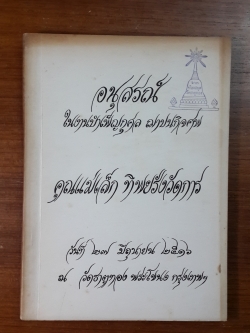 อนุสรณ์
ในงานบำเพ็ญกุศล ฌาปนกิจศพ
คุณแม่เล็ก ทิพยรังวัดการ
วันที่ ๒๗ มิถุนายน ๒๕๑๖
ณ วัดธาตุทอง พระโขนง กรุงเทพฯ